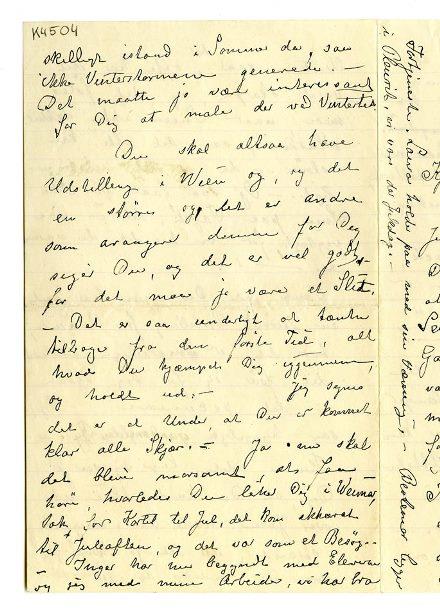 K4504
skelligt istand i Sommer da, saa
ikke Vinterstormene generede. -
Det maatte jo være interessant
for Dig at male der ved Vintertid
Du skal altsaa have
Udstilling i Wien og, og det
en større og, det er andre
som arrangere denne for Dig
siger Du, og det er vel godt,
for det maa jo være et Slid,
- Det er saa underligt at tænke
tilbage fra den første Tid, alt
hvad Du kjæmpede Dig igjennem,
og holdt ud. - jeg synes
det er et Under, at Du er kommet
klar alle Skjær. - Ja nu skal
det blive morsomt, at faa
høre hvorledes Du liker Dig i Weimar,
Tak for Kortet til Jul, det kom akkurat
til Juleaften, og det var som et Besøg. -
Inger har nu begyndt med Eleverne
og jeg med mine Arbeider, vi har bra
Fortjeneste. Laura holder paa med sin
i